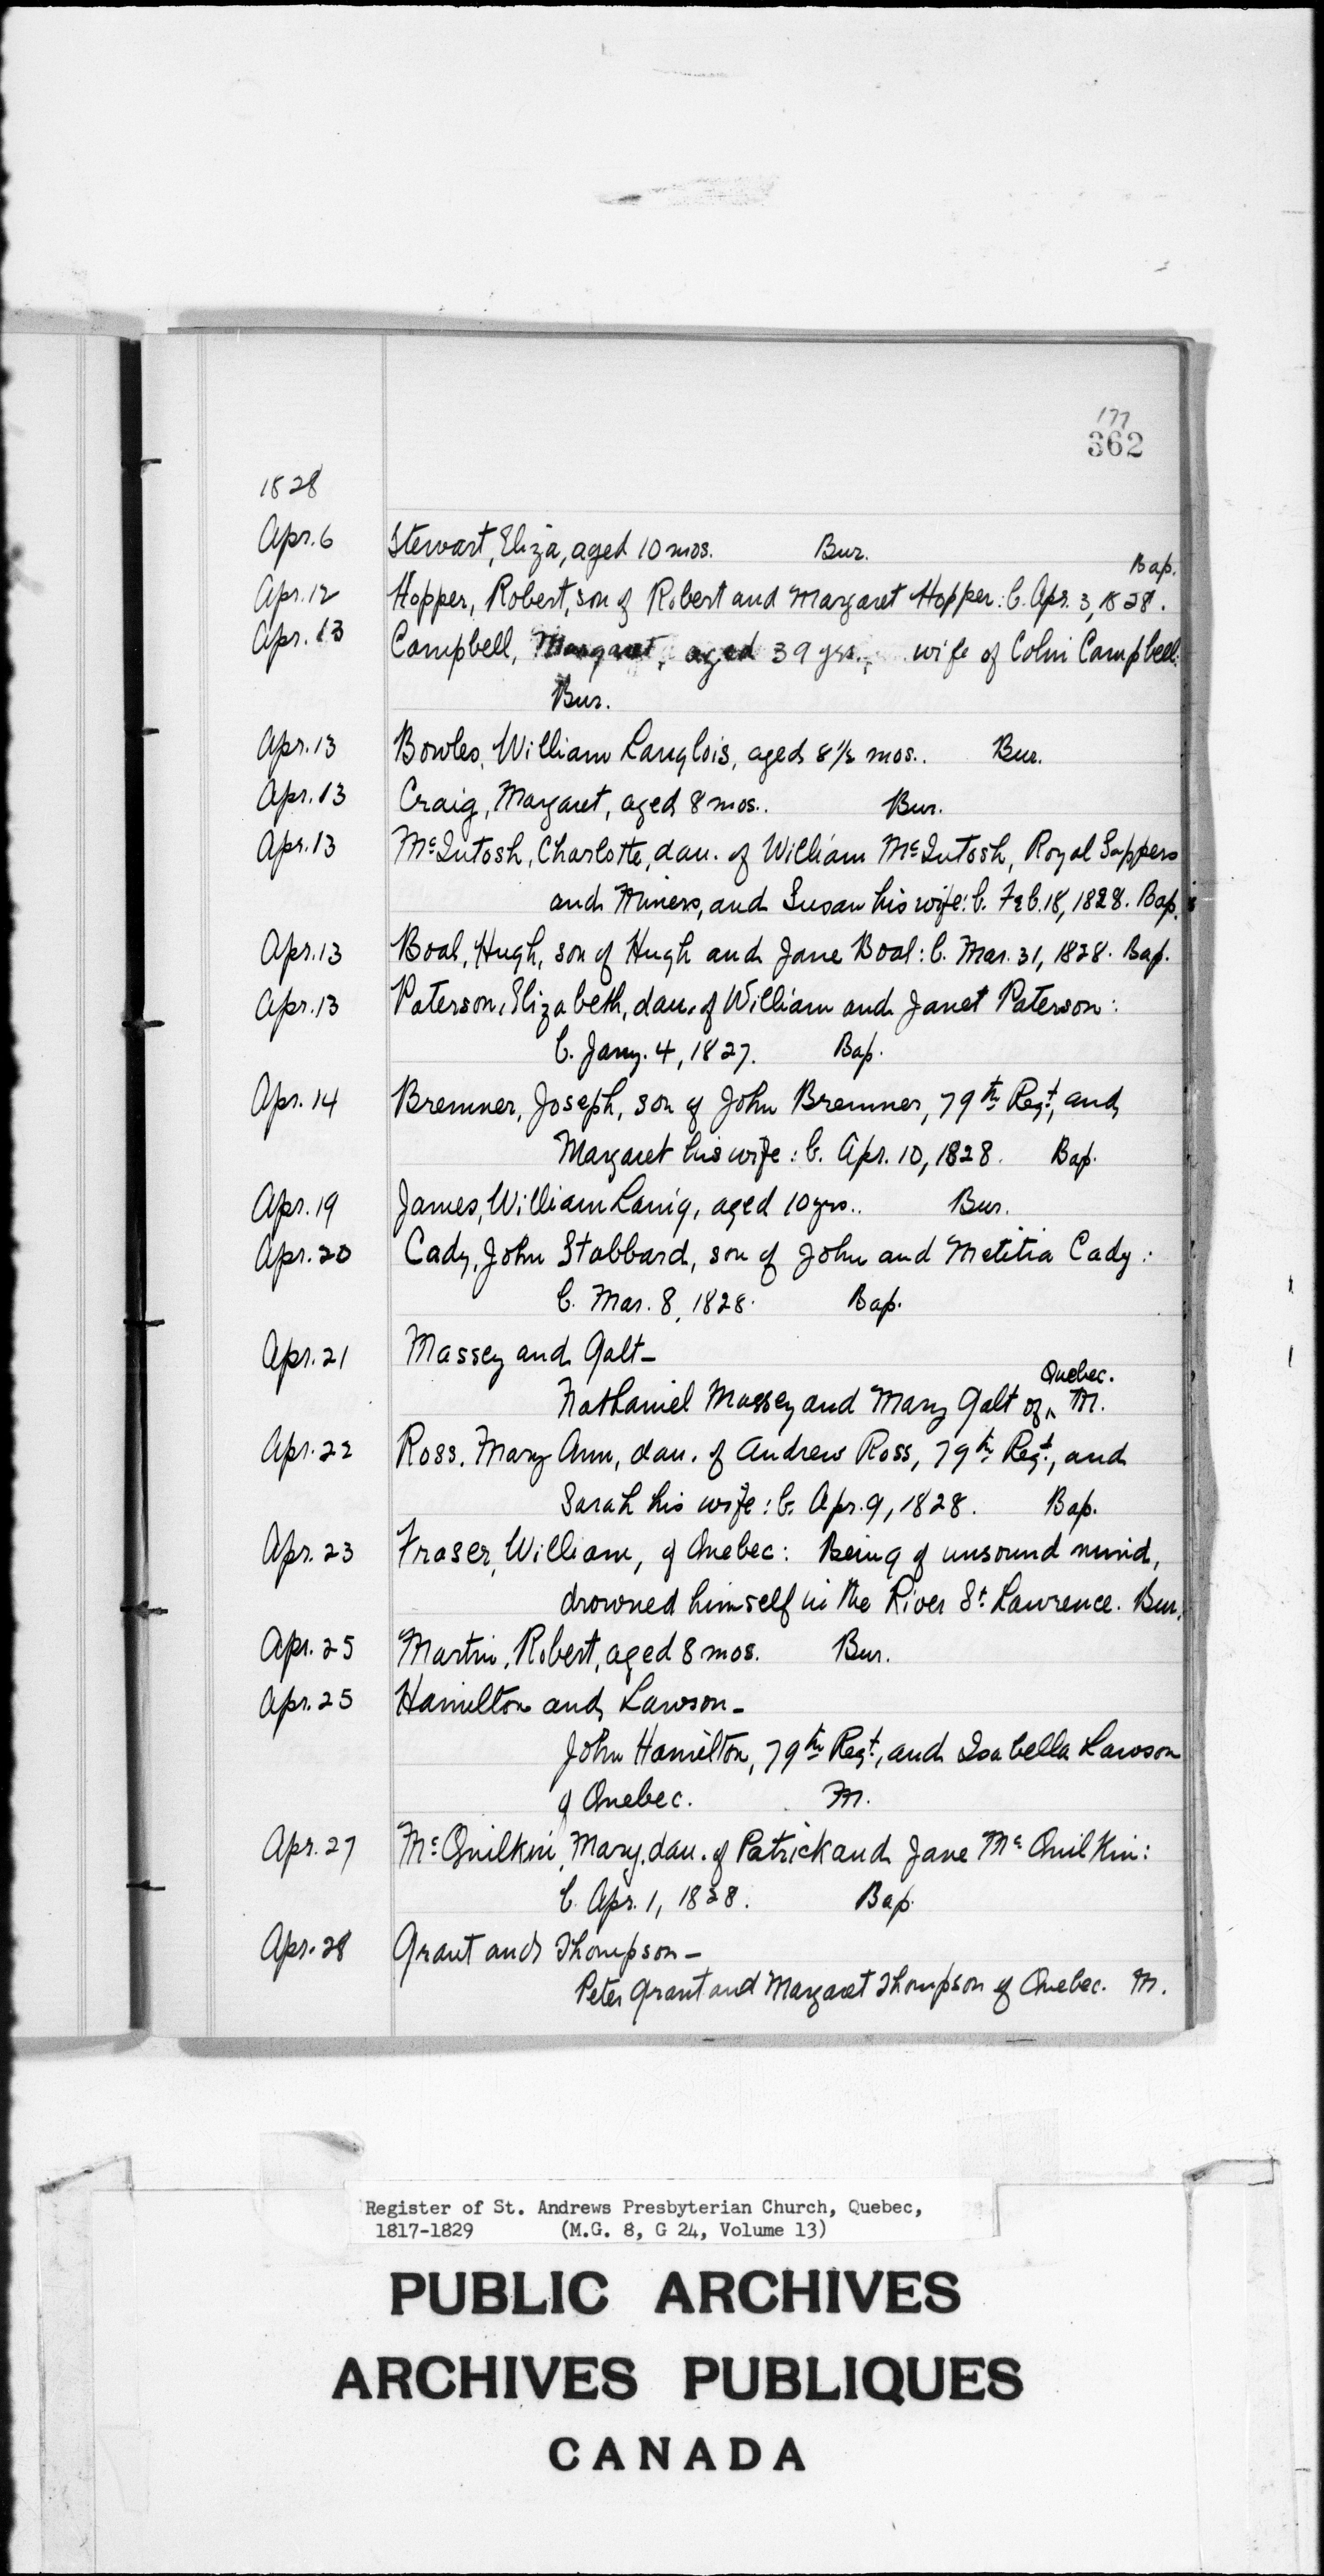 177
362
1828
Apr. 6 Stewart, Eliza, aged 10 mos. Bur.
Bap.
Apr. 12 Hopper, Robert, son of Robert and Margaret Hopper: b. Apr. 3, 1828.
Apr. 13 Campbell, Margaret, aged 39 yrs., wife of Colin Campbell:
Bur.
Apr. 13 Bowles, William Langlois, aged 8 1/2 mos.. Bur.
Apr. 13 Craig, Margaret, aged 8 mos.. Bur.
Apr. 13 McIntosh, Charlotte, dau. of William McIntosh, Royal Sappers
and Miners, and Susan his wife: b. Feb. 18, 1828. Bap.
Apr. 13 Boal, Hugh, son of Hugh and Jane Boal: b. Mar. 31, 1828. Bap.
Apr. 13 Paterson, Elizabeth, dau. of William and Janet Paterson:
b. Jany. 4, 1827. Bap.
Apr. 14 Bremner, Joseph, son of John Bremner, 79th Regt, and
Margaret his wife: b. Apr. 10, 1828. Bap.
Apr. 19 James, William Lanig, aged 10 yrs.. Bur.
Apr. 20 Cady, John Stabbard, son of John and Metitia Cady:
b. Mar. 8, 1828. Bap.
Apr. 21 Massey and Galt-
Quebec.
Nathaniel Massey and Mary Galt of ^ M.
Apr. 22 Ross, Mary Ann, dau. of Andrew Ross, 79th Regt, and
Sarah his wife: b. Apr. 9, 1828. Bap.
Apr. 23 Fraser, William, of Quebec: Being of unsound mind,
drowned himself in the River St. Lawrence. Bur.
Apr. 25 Martin, Robert, aged 8 mos. Bur.
Apr. 25 Hamilton and Lawson-
John Hamilton, 79th Regt, and Isabella Lawson
of Quebec. M.
Apr. 27 McQuilkin, Mary, dau. of Patrick and Jane McQuilkin:
b. Apr. 1, 1828. Bap.
Apr. 28 Grant and Thompson-
Peter Grant and Margaret Thompson of Quebec. M.
Register of St. Andrews Presbyterian Church, Quebec,
1817-1829 (M.G. 8, G 24, Volume 13)
PUBLIC ARCHIVES
ARCHIVES PUBLIQUES
CANADA